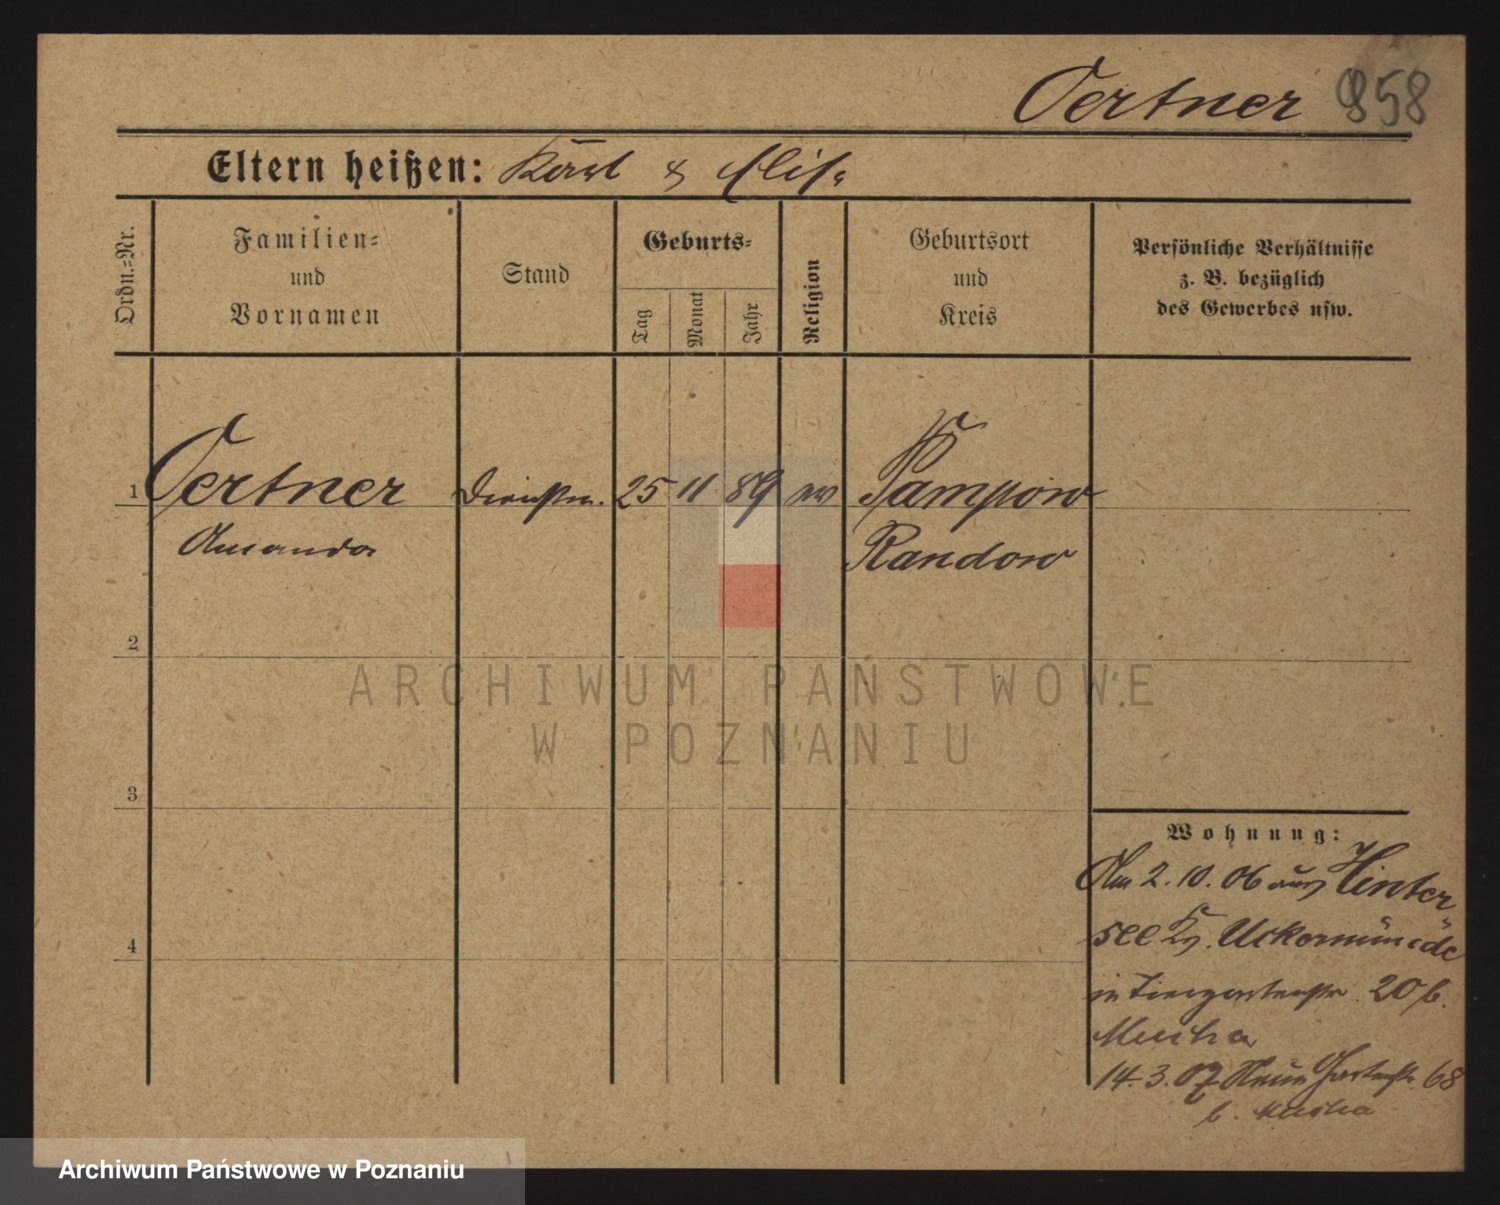 Oertner 858
Eltern heißen: Karl & Elis.
Ordn.-Nr.
Familien- und Vornamen
Stand
Geburts-
Tag
Monat
Jahr
Religion
Geburtsort und Kreis
Persönliche Verhältnisse
z. B. bezüglich
des Gewerbes usw.
1 Oertner Dienstm. 25 11 89 ev Pampow
Amanda Randow
2
ARCHIWUM PAŃSTWOWE
W POZNANIU
3
Wohnung:
Am 2.10.06 aus Hinter
4
see Kr. Uckermünde
in Tiergartenstr. 20 b.
14.3.07 Neue Gartenstr. 68
b.
Archiwum Państwowe w Poznaniu